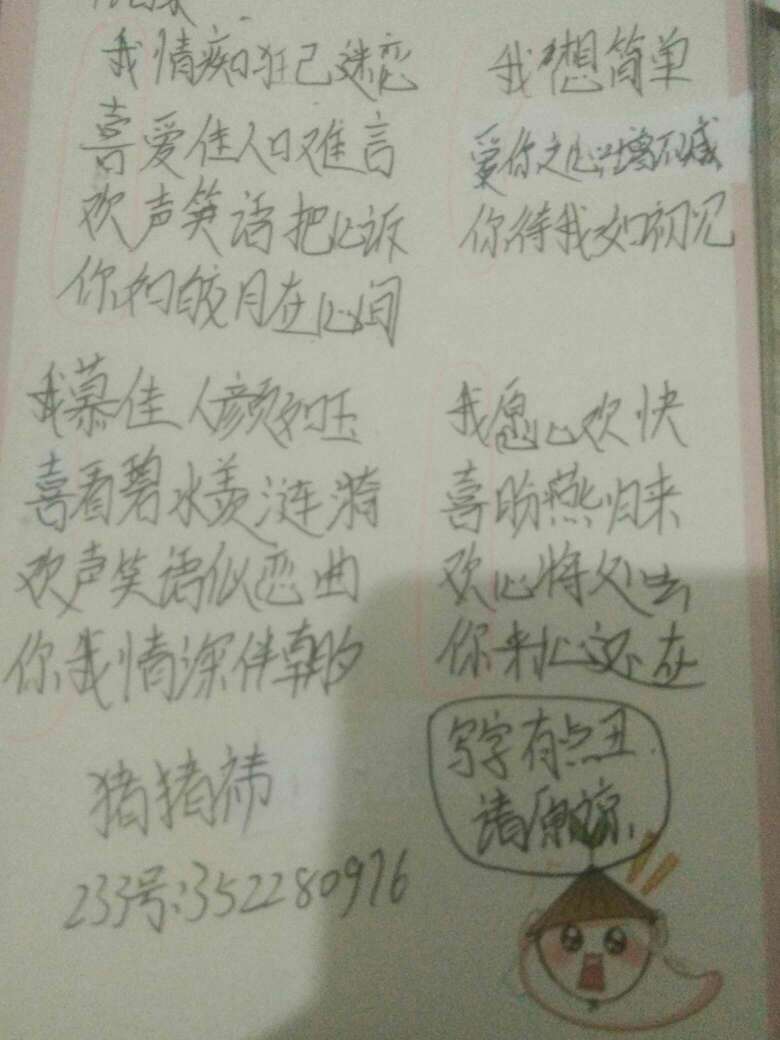 我情痴狂已迷恋
喜爱佳人口难言
欢声笑语把心诉
你如皎月在心间
我想简单
爱你之心增不减
你待我如初见
我慕佳人颜如玉
喜看碧水羡涟漪
欢声笑语似恋曲
你我情深伴朝夕
我愿心欢快
喜盼燕归来
欢心将父去
你来心还在
猪猪祎
233号:352280976
写字有点丑
请原谅